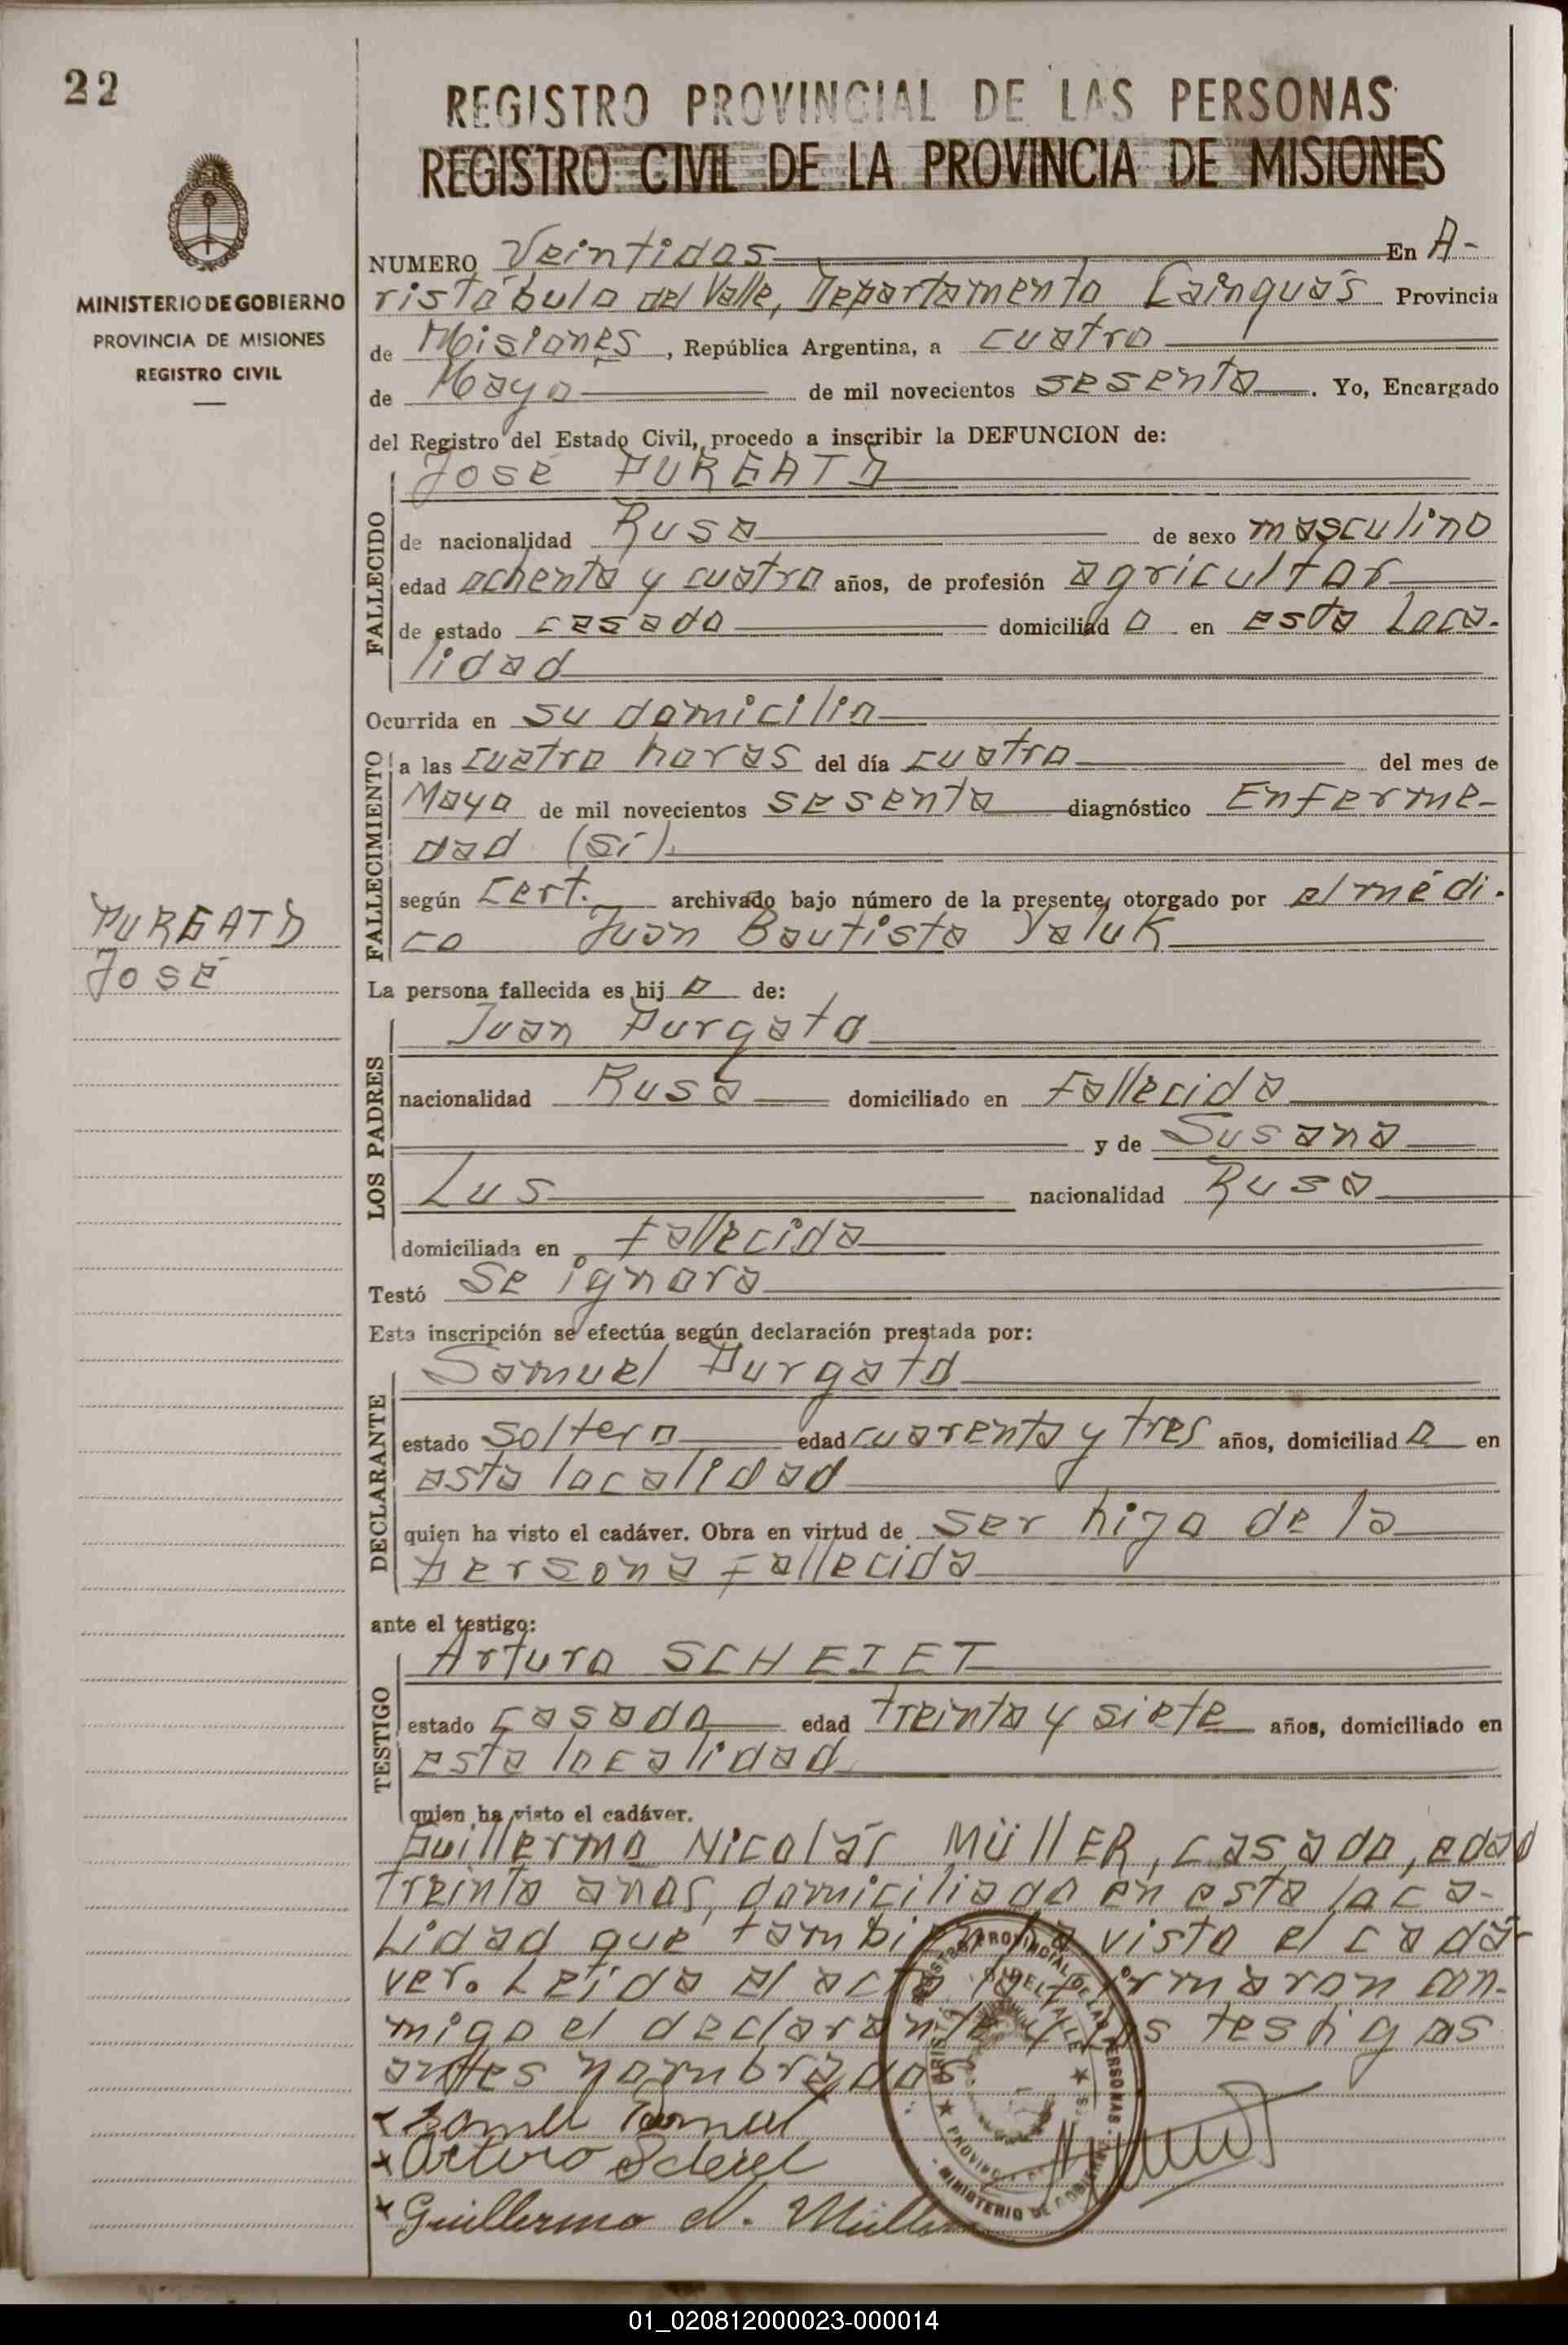 22
REGISTRO PROVINCIAL DE LAS PERSONAS
REGISTRO CIVIL DE LA PROVINCIA DE MISIONES
MINISTERIO DE GOBIERNO
PROVINCIA DE MISIONES
REGISTRO CIVIL
NUMERO Veintidos En A-
ristóbulo del Valle, Departamento Cainguás Provincia
de Misiones, República Argentina, a cuatro
de Mayo de mil novecientos sesenta. Yo, Encargado
del Registro del Estado Civil, procedo a inscribir la DEFUNCION de:
José PURGATO
FALLECIDO
de nacionalidad Rusa de sexo masculino
edad ochenta y cuatro años, de profesión agricultor
de estado casado domiciliado en esta loca-
lidad
Ocurrida en su domicilio
FALLECIMIENTO
a las cuatro horas del día cuatro del mes de
Mayo de mil novecientos sesenta diagnóstico Enferme-
dad (sí).
según Cert. archivado bajo número de la presente, otorgado por el médi-
co Juan Bautista Yaluk
PURGATO
José
La persona fallecida es hijo de:
LOS PADRES
Juan Purgato
nacionalidad Rusa domiciliado en Fallecido
y de Susana
Lus nacionalidad Rusa
domiciliada en Fallecida
Testó Se ignora
Esta inscripción se efectúa según declaración prestada por:
DECLARANTE
Samuel Purgato
estado soltero edad cuarenta y tres años, domiciliado en
esta localidad
quien ha visto el cadáver. Obra en virtud de ser hijo de la
persona fallecida
ante el testigo:
TESTIGO
Arturo SCHEIET
estado casado edad treinta y siete años, domiciliado en
esta localidad
quien ha visto el cadáver.
Guillermo Nicolás MüllER, casado, edad
treinta años, domiciliado en esta loca-
lidad que también ha visto el cadá-
ver. Leída el acta la firmaron con-
migo el declarante y los testigos
antes nombrados
Arturo
Guillermo N. Müller
REGISTRO PROVINCIAL DE LAS PERSONAS
MINISTERIO DE GOBIERNO
01_020812000023-000014